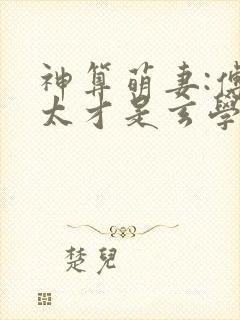 神算萌妻:傅
太才是玄學
楚兒